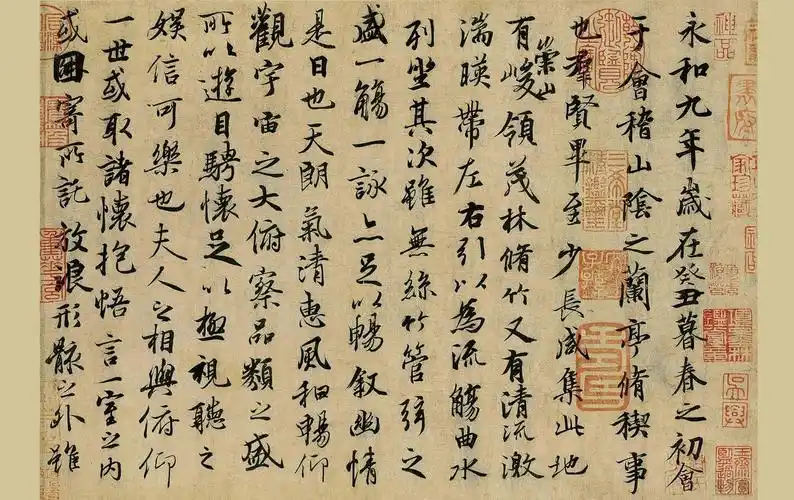 永和九年歲在癸丑暮春之初會
于會稽山陰之蘭亭脩稧事
也羣賢畢至少長咸集此地
有崇山峻領茂林脩竹又有清流激
湍暎帶左右引以為流觴曲水
列坐其次雖無絲竹管弦之
盛一觴一詠亦足以暢敘幽情
是日也天朗氣清惠風和暢仰
觀宇宙之大俯察品類之盛
所以遊目騁懷足以極視聽之
娛信可樂也夫人之相與俯仰
一世或取諸懷抱悟言一室之內
或因寄所託放浪形骸之外雖
神品